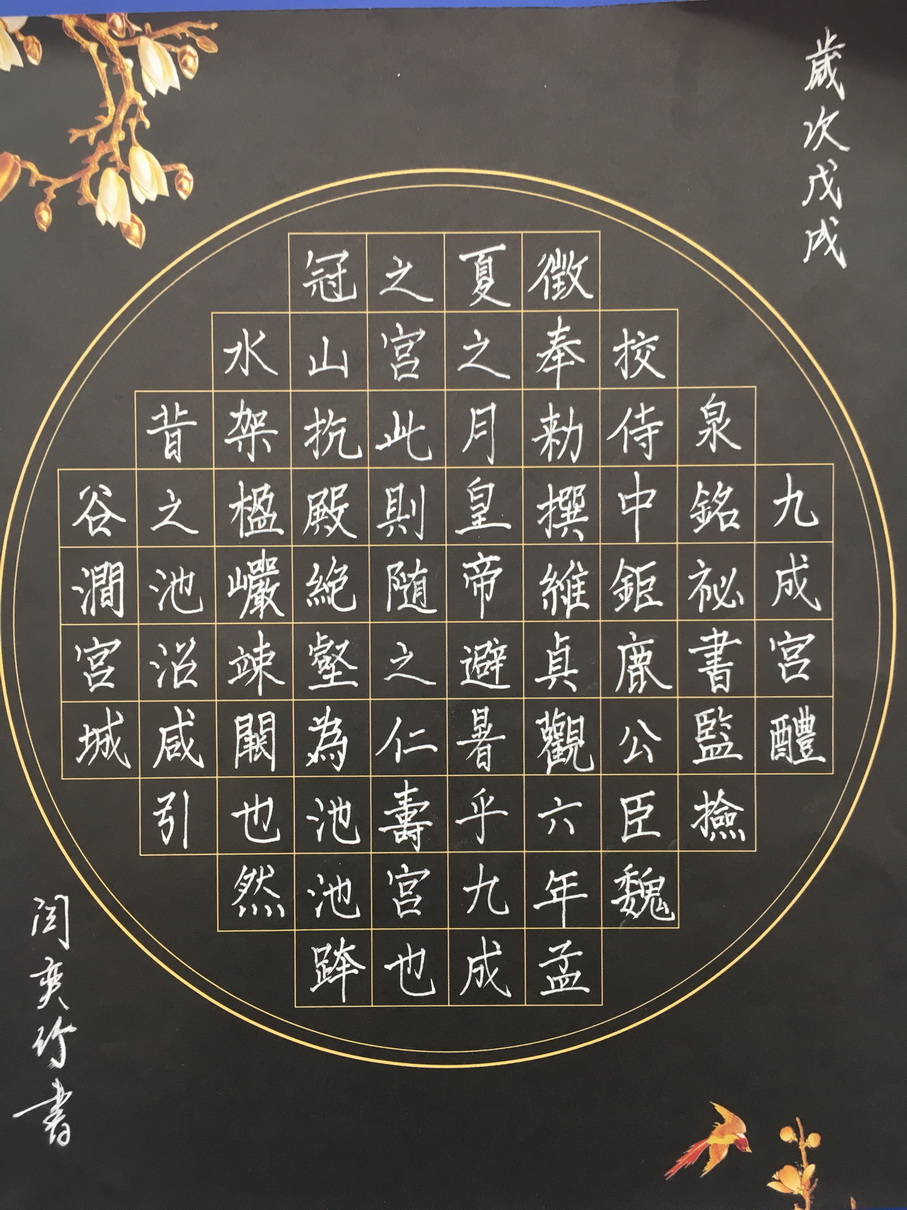 歲次戊戌
九成宮醴
泉銘祕書監撿
挍侍中鉅鹿公臣魏
徵奉勅撰維貞觀六年孟
夏之月皇帝避暑乎九成
之宮此則随之仁壽宮也
冠山抗殿絶壑為池池跨
水架楹巖竦闕也然
昔之池沼咸引
谷澗宮城
闫奕竹書